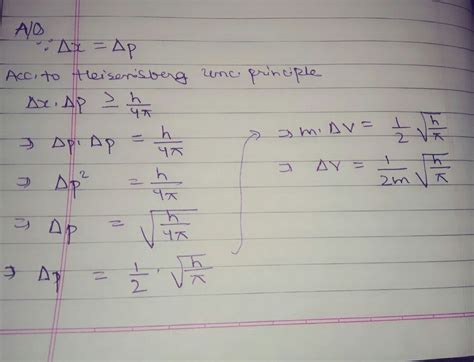 A/Q
∵ Δx = Δp
Acc. to Heisenisberg unc. principle
Δx · Δp ≥ h/4π
⇒ Δp · Δp = h/4π
⇒ Δp² = h/4π
⇒ Δp = √(h/4π)
⇒ Δp = 1/2 · √(h/π)
⇒ m · ΔV = 1/2 √(h/π)
⇒ ΔV = 1/2m √(h/π)